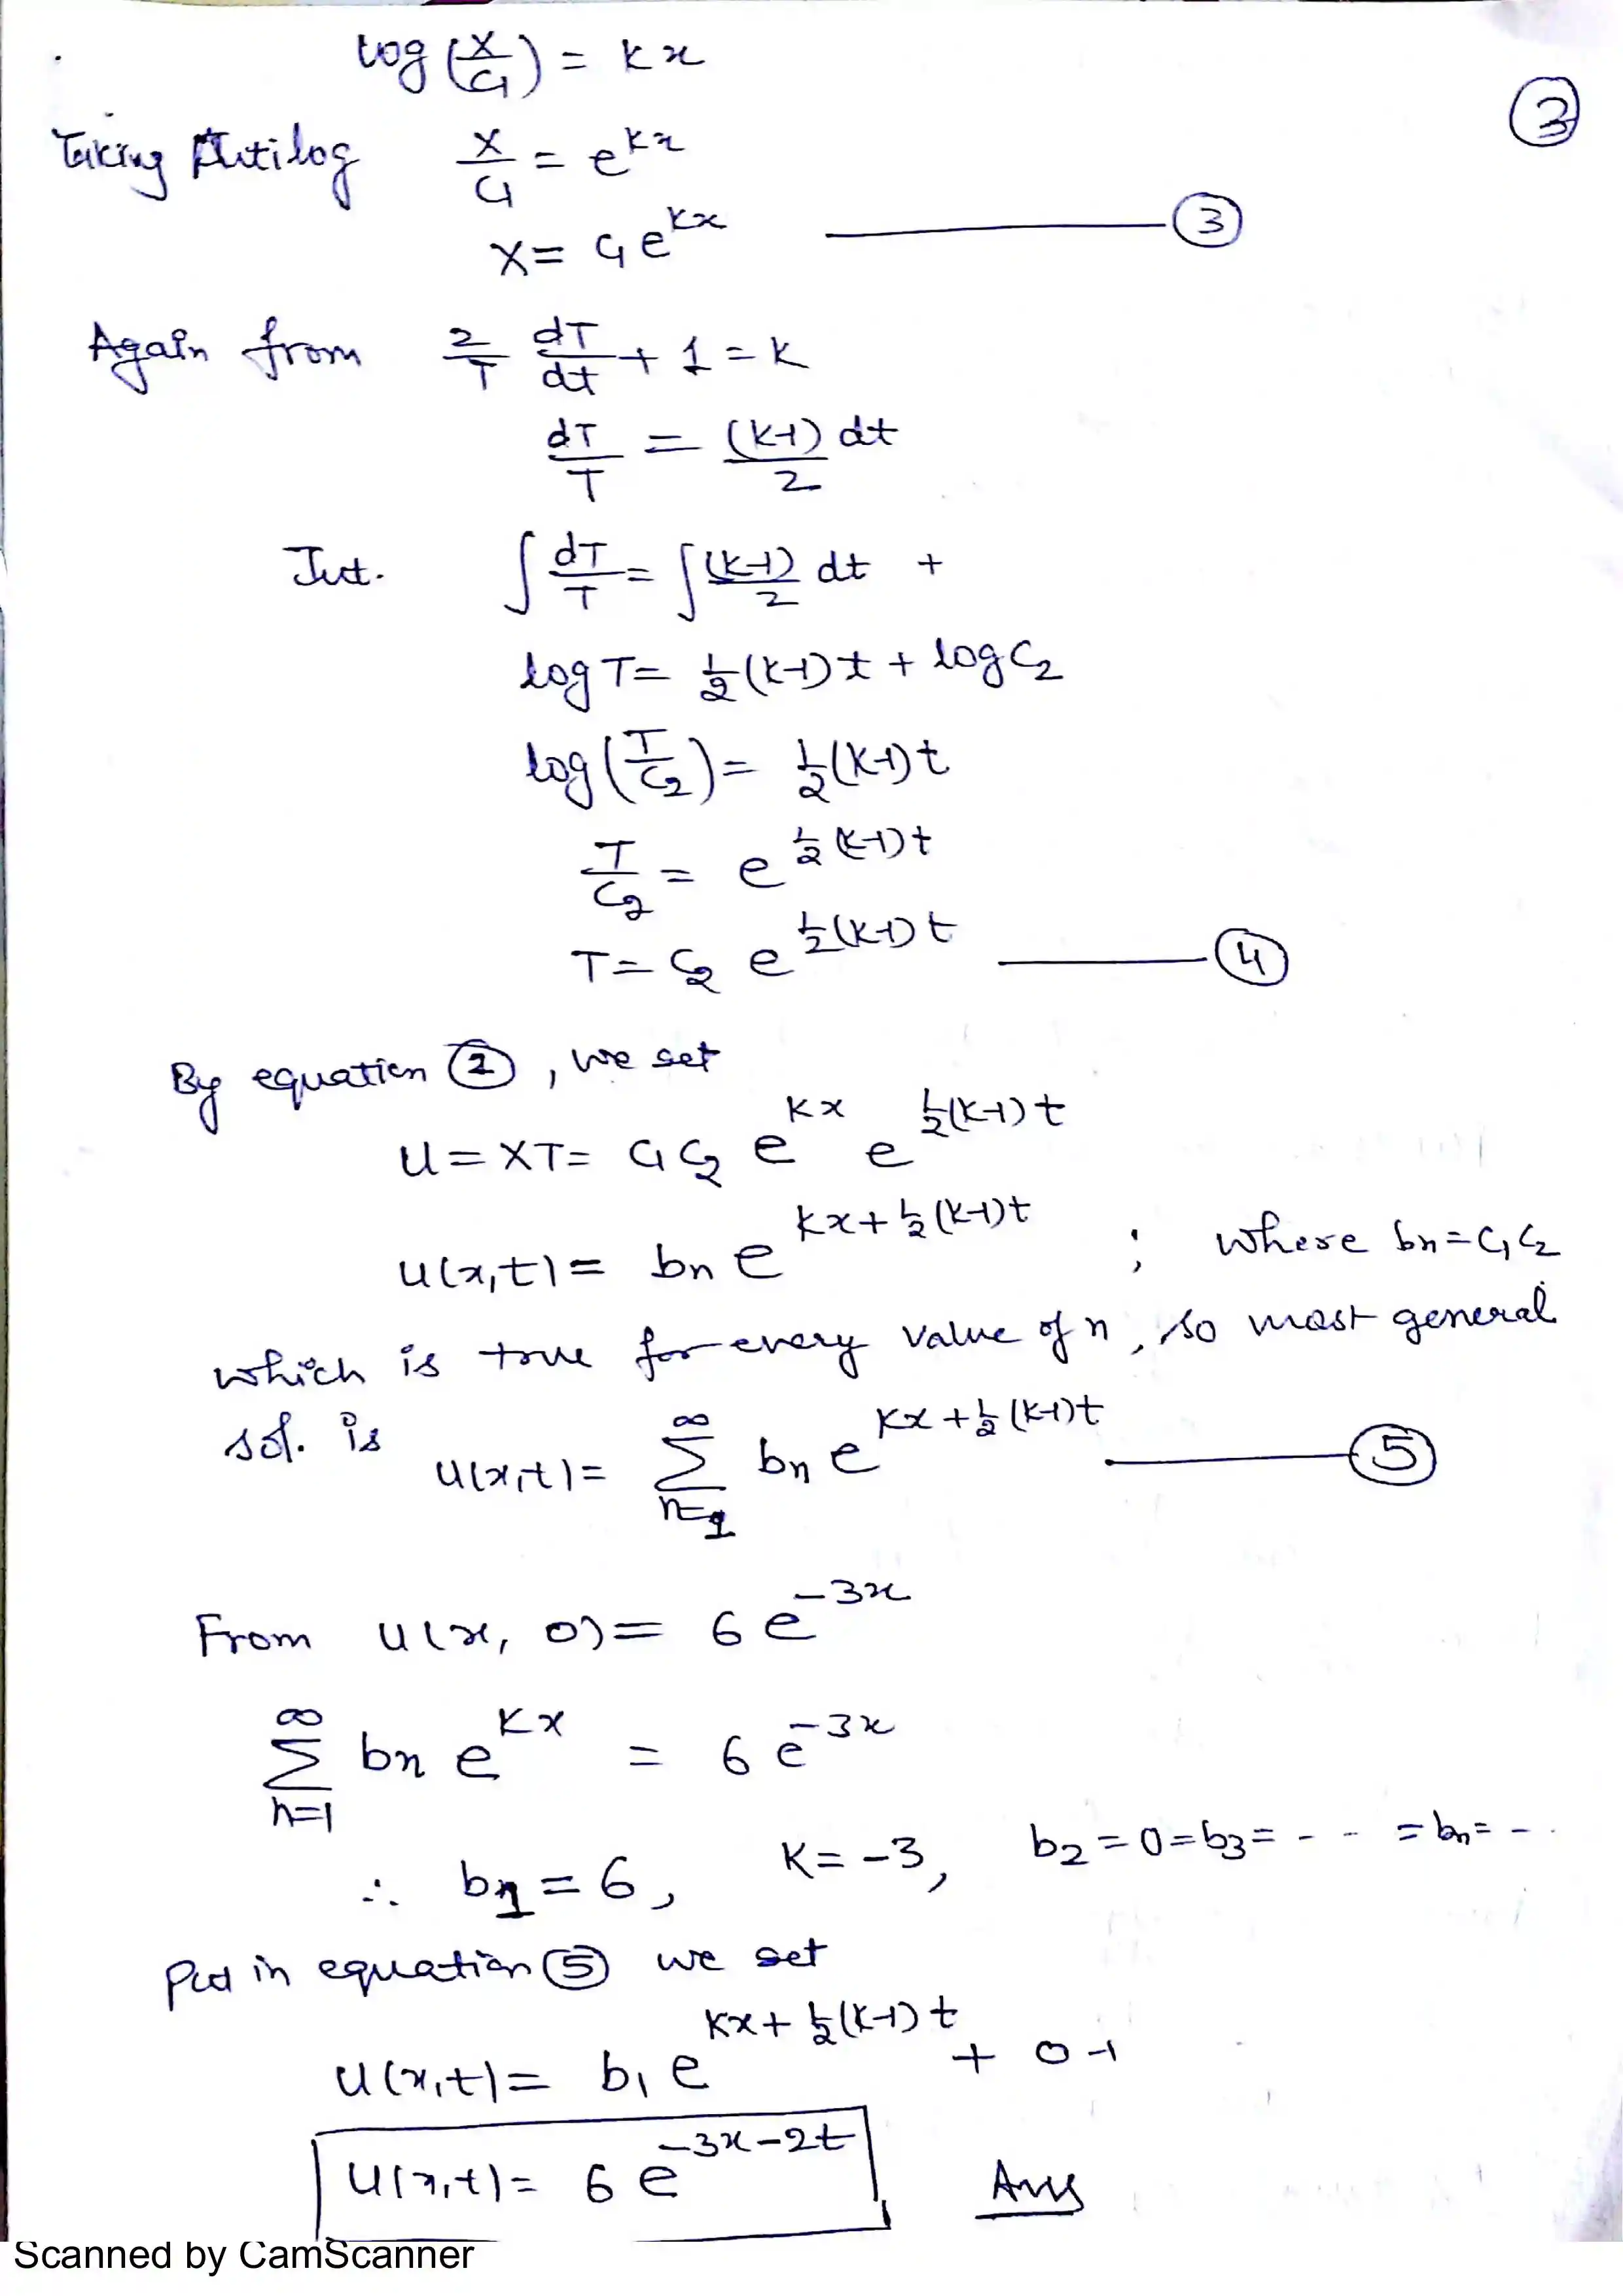 log (X/C1) = kx
③
Taking Antilog X/C1 = e^{kx}
X = C1 e^{kx} ——— ③
Again from 2/T dT/dt + 1 = k
dT/T = (k-1)/2 dt
Int. ∫ dT/T = ∫ (k-1)/2 dt +
log T = 1/2 (k-1) t + log C2
log (T/C2) = 1/2 (k-1) t
T/C2 = e^{1/2 (k-1) t}
T = C2 e^{1/2 (k-1) t} ——— ④
By equation ②, we get
U = XT = C1 C2 e^{kx} e^{1/2 (k-1) t}
U(x,t) = bn e^{kx + 1/2 (k-1) t} ; where bn = C1 C2
which is true for every value of n, so most general
sol. is U(x,t) = ∑_{n=1}^{∞} bn e^{kx + 1/2 (k-1) t} ——— ⑤
From U(x, 0) = 6 e^{-3x}
∑_{n=1}^{∞} bn e^{kx} = 6 e^{-3x}
∴ b1 = 6, k = -3, b2 = 0 = b3 = - - = bn = - -
Put in equation ⑤ we get
U(x,t) = b1 e^{kx + 1/2 (k-1) t} + 0 +
U(x,t) = 6 e^{-3x-2t} Ans
Scanned by CamScanner